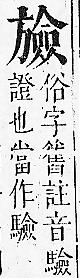 俗字舊註音驗
證也當作驗